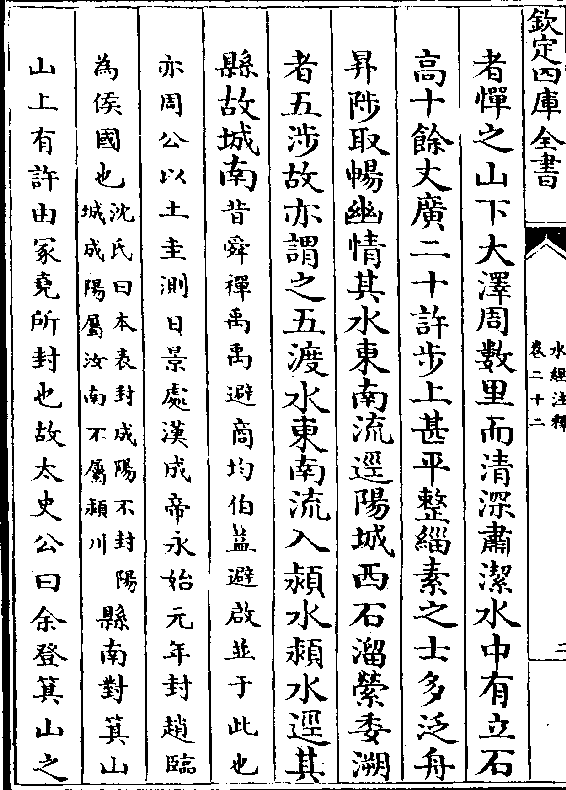 欽定四庫全書
水經注釋
卷二十二
二
者憚之山下大澤周數里而清深肅潔水中有立石
高十餘丈廣二十許步上甚平整緇素之士多泛舟
昇陟取暢幽情其水東南流逕陽城西石溜縈委溯
者五涉故亦謂之五渡水東南流入潁水潁水逕其
縣故城南昔舜禪禹禹避商均伯益避啟並于此也
亦周公以土圭測日景處漢成帝永始元年封趙臨
為侯國也沈氏曰本表封成陽不封陽城成陽屬汝南不屬潁川縣南對箕山
山上有許由冢堯所封也故太史公曰余登箕山之